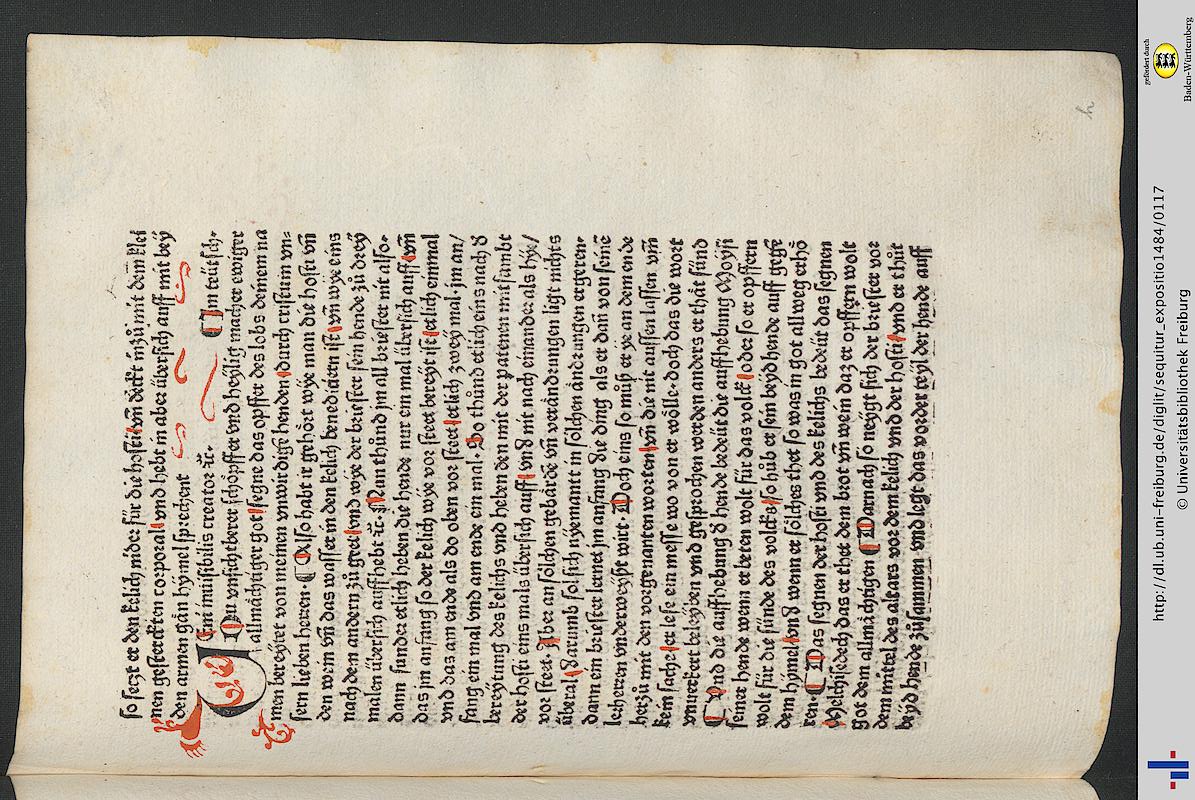 so setzt er den kelich nider für die hosti vn̄ deckt in zů mit dem klei
nen gesterckten corporal vnd hebt in aber übersich auff mit bey
den armen gān hymel sprechent
Eni inuisibilis creator ꝛc̄. ¶ Im teütsch.
DU vnsichtberer schöpffer vnd heylig macher ewiger
allmächtiger got segne das opffer des lobs deinem na
men bereytet von meinen vnwirdigē henden durch cristum vn-
sern lieben herren. ¶ Also habt ir gehört wye man die hosti vn̄
den wein vn̄ das wasser in den kelich benedicirn ist vn̄ wye eins
nach den andern zů greif vnd wye der briester sein hende zů drey
malen übersich auffhebt ꝛc̄. Nun thůnd jm all briester nit also.
dann sunder etlich heben die hende nur ein mal übersich auff vn̄
das jm anfang so der kelich wye vor steet bereyt ist etlich einmal
vnd das am ende als do oben vor steet etlich zwey mal jm an/
fang ein mal vnd am ende ein mal. So thůnd etlich eins nach d̄
bereytung des kelichs vnd heben den mit der patenen mitsambt
der hosti eins mals übersich auff vnd mit nach einander als hye/
vor steet. Aber an sölchen gebärdē vn̄ verändrungen ligt nichts
überal darumb sol sich nyemant in sölchen ändrungen ergeren.
dann ein briester lernet jm anfang die ding als er dan̄ von seinē
lecherren vnderweyßt wirt. Doch eins so můß er ye an dem ende
herzů mit den vorgenanten worten vn̄ die nit aussen lassen vm̄
kein sache er lese ein messe wo von er wölle. doch das die wort
vnuerkert beleyben vnd gesprochen werden anders er thāt sünd
¶ Und die auffhebung d̄ hende bedeüt die auffhebung Moysi
seiner hende wenn er beten wolt für das volck oder so er opffern
wolt für die sünde des volcks so hůb er sein beyd hende auff gegē
dem hymel vnd wenn er sölches thet so was in got allweg erhö
ren. ¶ Das segnen der hosti vnd des kelichs bedeüt das segnen
Melchisedech das er thet dem brot vn̄ wein da er opffern wolt
got dem allmächtigen ¶ Darnach so neygt sich der briester vor
dem mittel des altars vor dem kelich vnd der hosti vnd er thůt
beyd hende zůsammen vnd legt das vorder teyl der hende auff
h
gefördert durch
Baden-Württemberg
http://dl.ub.uni-freiburg.de/diglit/sequitur_expositio1484/0117
© Universitätsbibliothek Freiburg